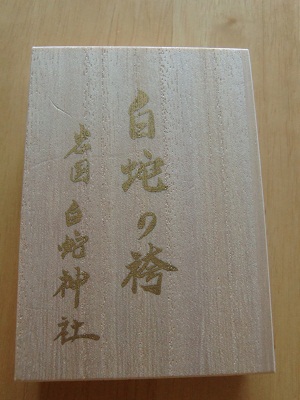 白蛇の袴
岩国白蛇神社